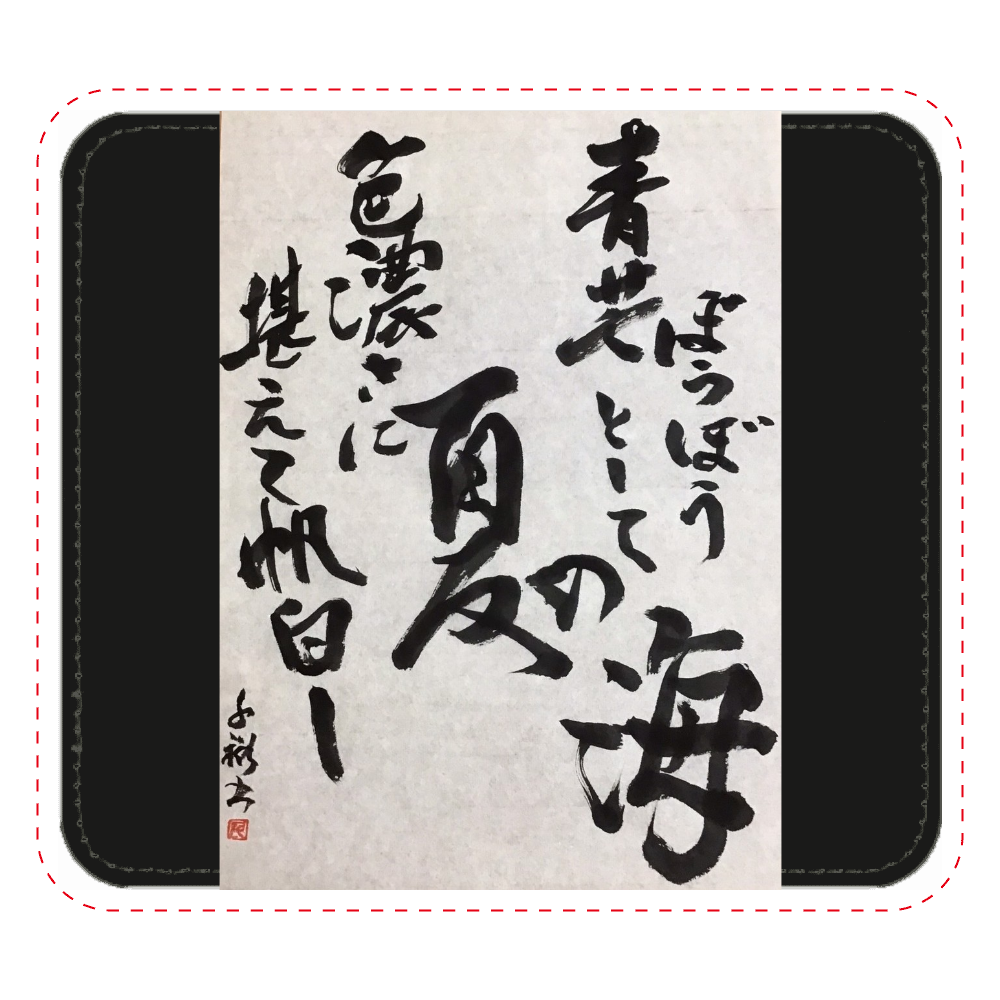 青芒
ぼうぼう
として
夏の海
色濃さに
堪えて帆白し